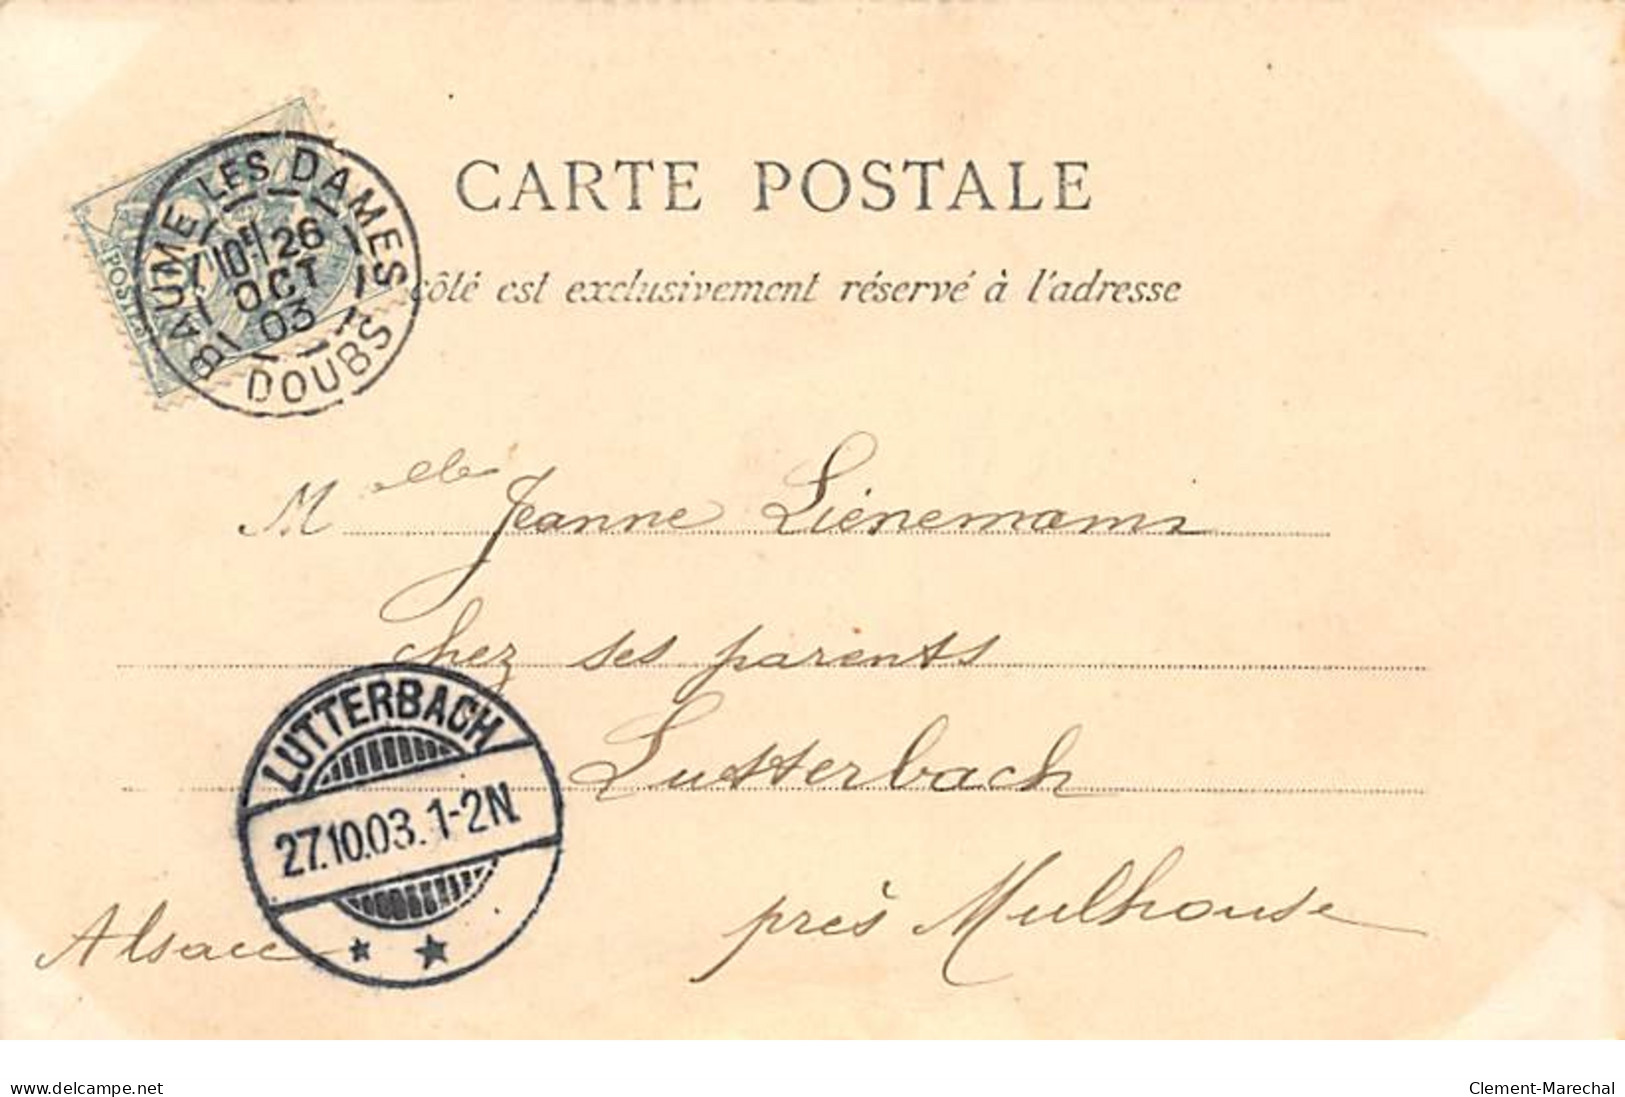 CARTE POSTALE
côté est exclusivement réservé à l'adresse
POSTES
BAUME LES DAMES
10E 26
OCT
03
DOUBS
Melle Jeanne Lienemann
chez ses parents
Lutterbach
près Mulhouse
Alsace
LUTTERBACH
27.10.03. 1-2N.
* *
www.delcampe.net
Clement-Marechal